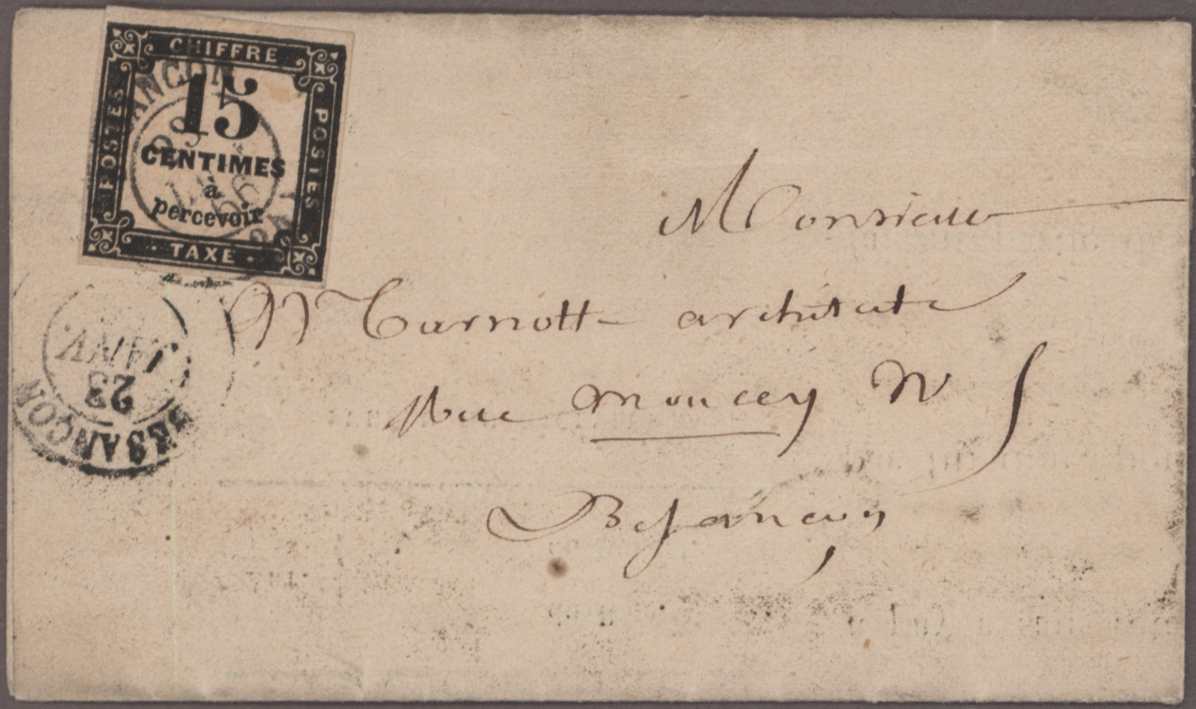 CHIFFRE
POSTES
POSTES
15
CENTIMES
à
percevoir
· TAXE ·
BESANÇON
23
JANV.
Monsieur
Mr Carnotte architecte
Rue Moncey N
Besançon